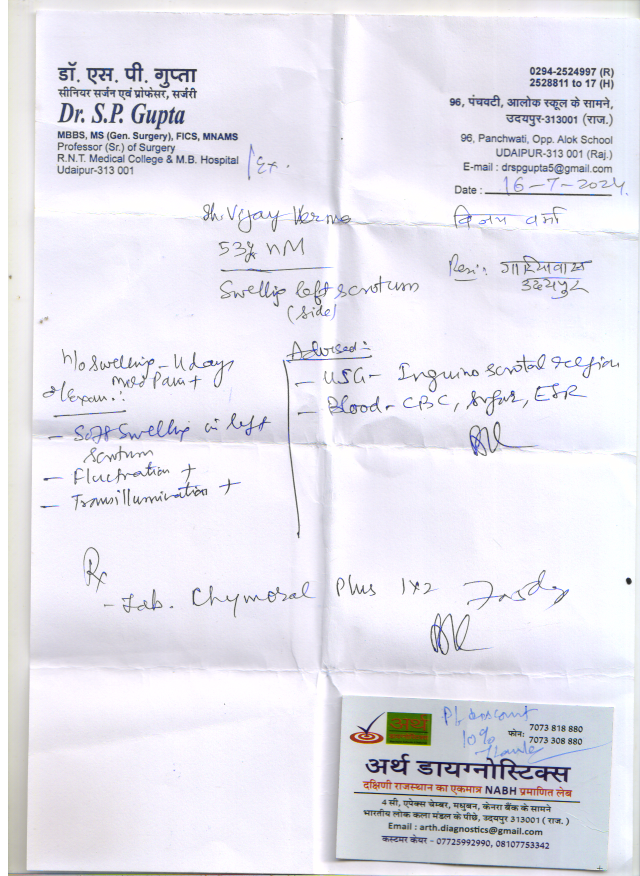 डॉ. एस. पी. गुप्ता
सीनियर सर्जन एवं प्रोफेसर, सर्जरी
Dr. S.P. Gupta
MBBS, MS (Gen. Surgery), FICS, MNAMS
Professor (Sr.) of Surgery
R.N.T. Medical College & M.B. Hospital
Udaipur-313 001
Ex.
0294-2524997 (R)
2528811 to 17 (H)
96, पंचवटी, आलोक स्कूल के सामने,
उदयपुर-313001 (राज.)
96, Panchwati, Opp. Alok School
UDAIPUR-313 001 (Raj.)
E-mail : drspgupta5@gmail.com
Date : 16-7-2024
Sh. Vijay Verma
विजय वर्मा
53y M
Resi:
उदयपुर
Swelling left scrotum
(side)
H/o swelling - 4 days
mild Pain +
O/Exam.:
- Soft Swelling in left
scrotum
- Fluctration +
- Transillumination +
Advised:-
- USG - Inguino scrotal region
- Blood - CBC, Sugar, ESR
Rx
- Tab. Chymoral Plus 1x2
Pl. discount
10%
अर्थ
फोन: 7073 818 880
7073 308 880
अर्थ डायग्नोस्टिक्स
दक्षिणी राजस्थान का एकमात्र NABH प्रमाणित लेब
4 सी, एपेक्स चेम्बर, मधुबन, केनरा बैंक के सामने
भारतीय लोक कला मंडल के पीछे, उदयपुर 313001 ( राज. )
Email : arth.diagnostics@gmail.com
कस्टमर केयर - 07725992990, 08107753342